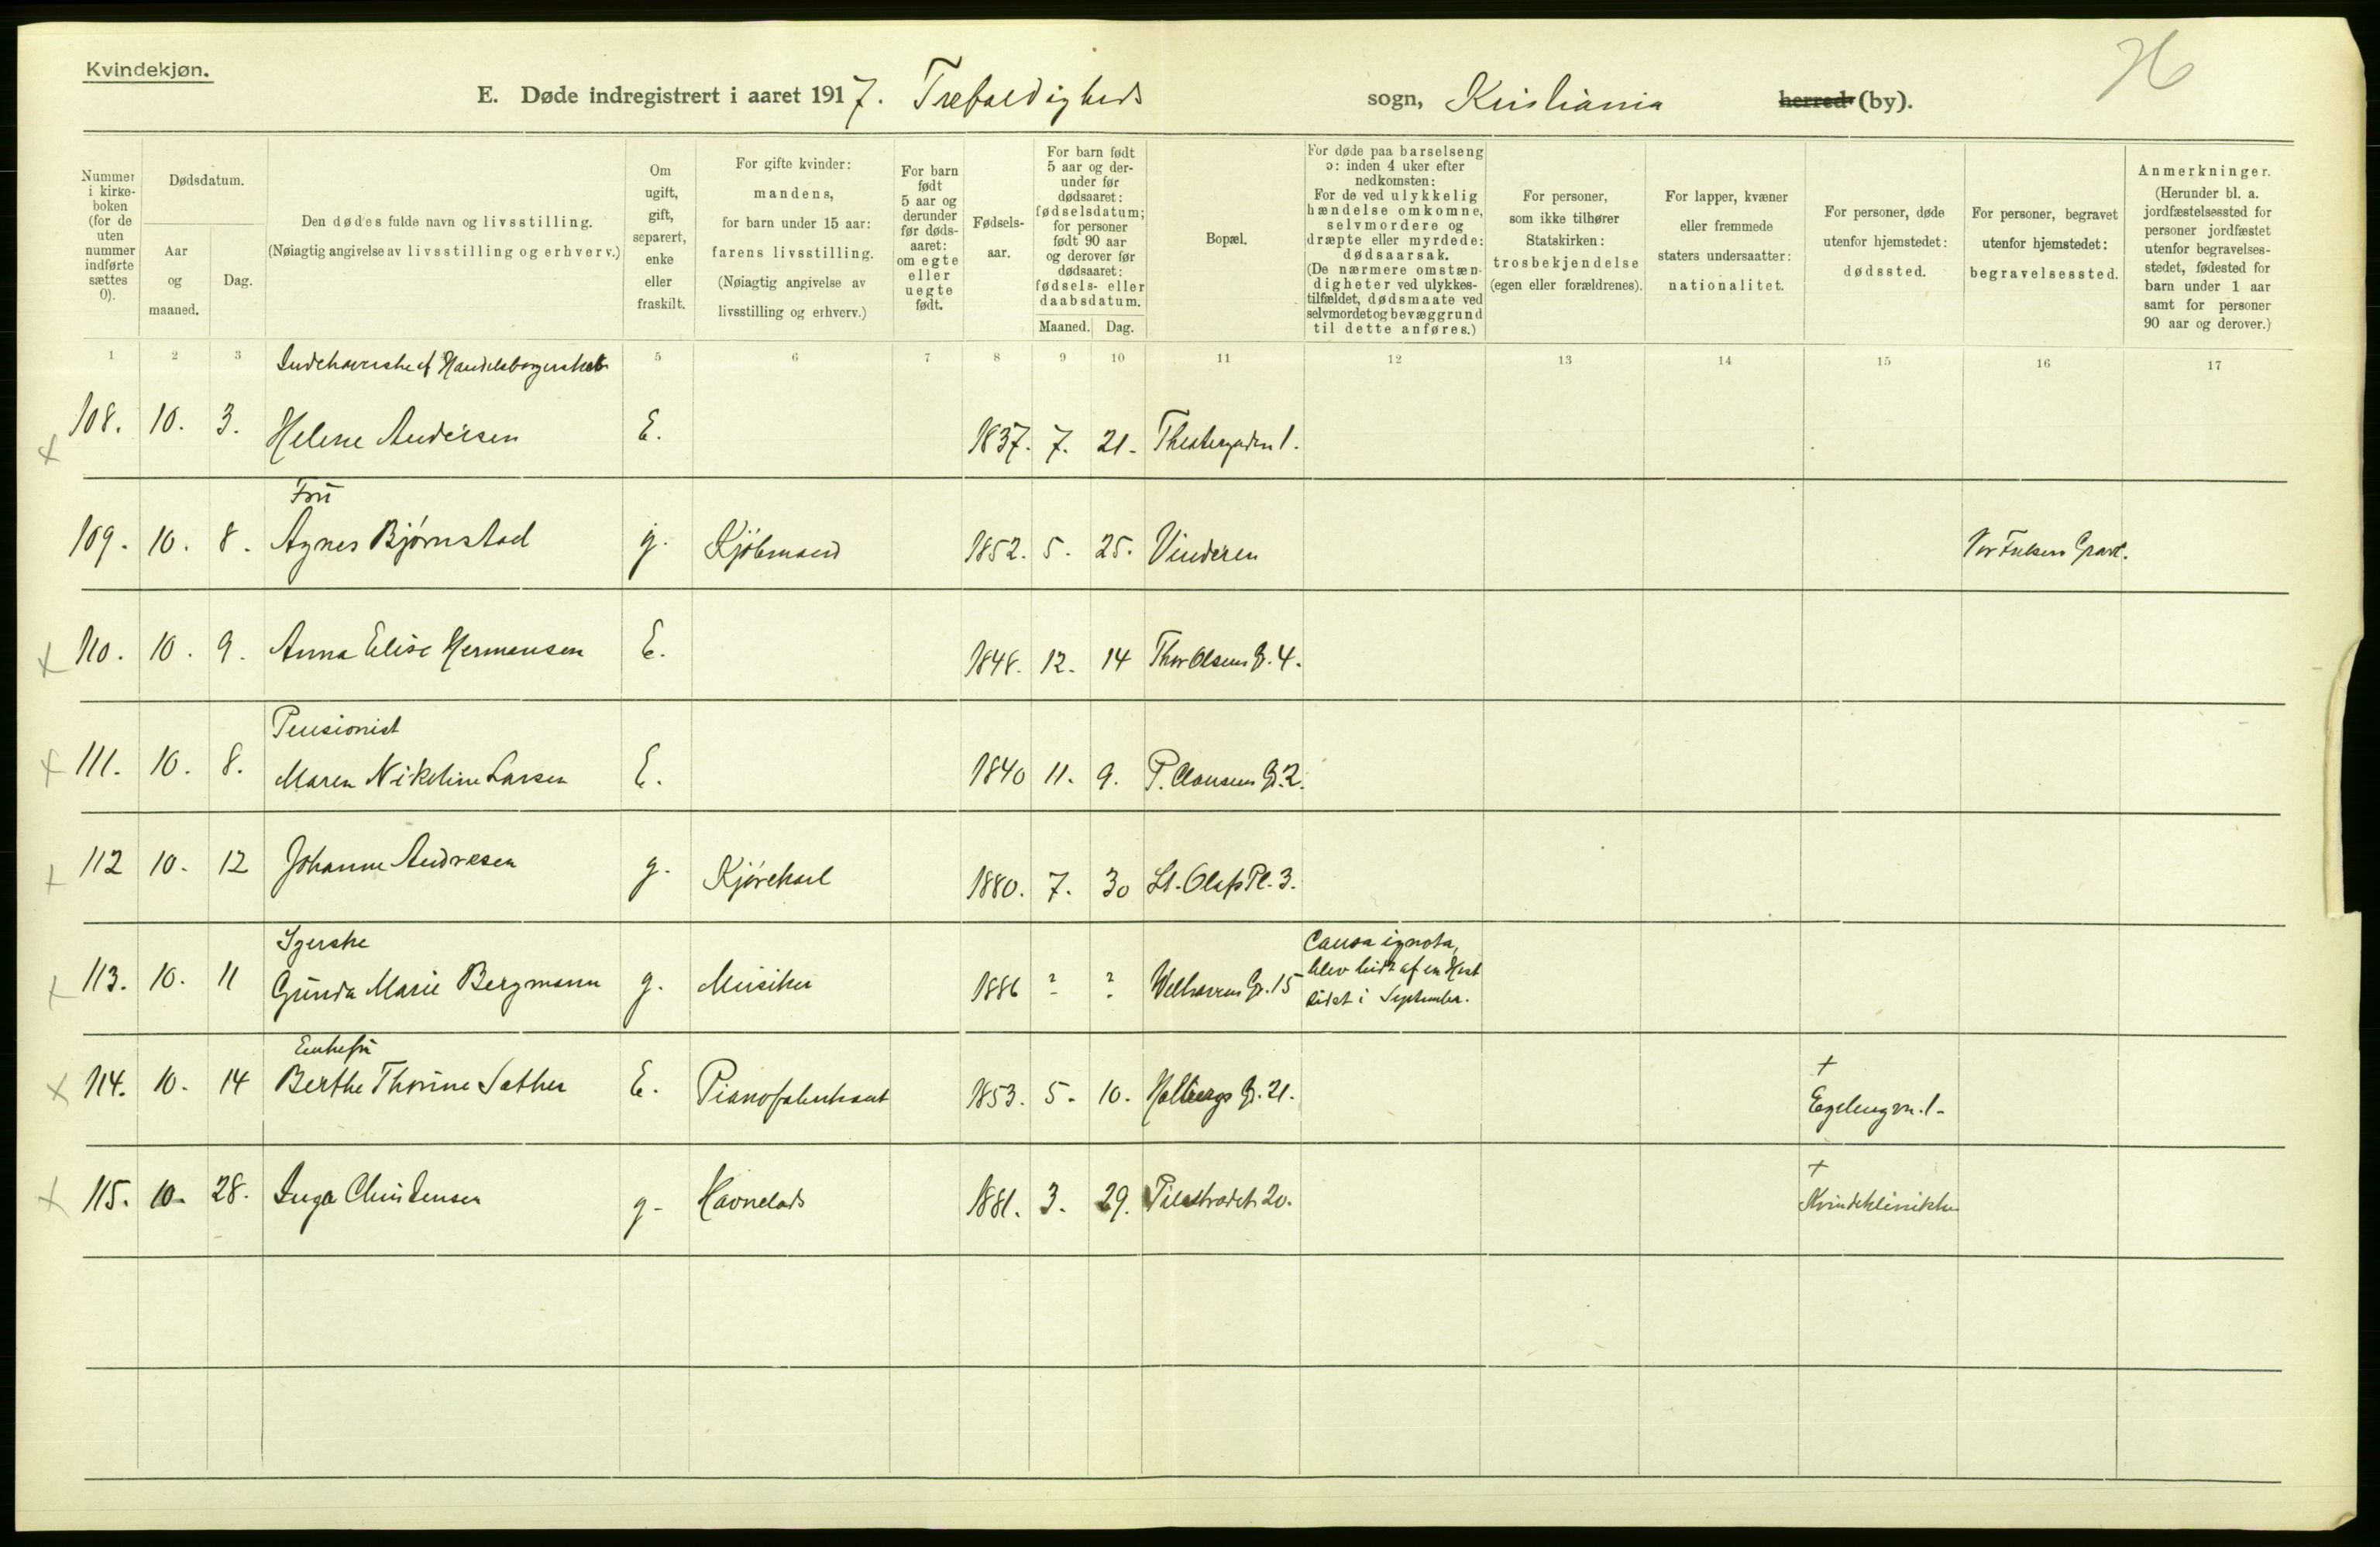 Kvindekjøn.
E. Døde indregistrert i aaret 1917. Trefoldigheds sogn, Kristiania herred (by).
Nummer i kirkeboken (for de uten nummer indførte sættes 0).
Dødsdatum.
Aar og maaned.
Dag.
Den dødes fulde navn og livsstilling.
(Nøiagtig angivelse av livsstilling og erhverv.)
Om ugift, gift, separert, enke eller fraskilt.
For gifte kvinder: mandens, for barn under 15 aar: farens livsstilling. (Nøiagtig angivelse av livsstilling og erhverv.)
For barn født 5 aar og derunder før dødsaaret: om egte eller uegte født.
Fødselsaar.
For barn født 5 aar og derunder før dødsaaret: fødselsdatum; for personer født 90 aar og derover før dødsaaret: fødsels- eller daabsdatum.
Maaned. Dag.
Bopæl.
For døde paa barselseng ɔ: inden 4 uker efter nedkomsten: For de ved ulykkelig hændelse omkomne, selvmordere og dræpte eller myrdede: dødsaarsak. (De nærmere omstændigheter ved ulykkestilfældet, dødsmaate ved selvmordet og bevæggrund til dette anføres.)
For personer, som ikke tilhører Statskirken: trosbekjendelse (egen eller forældrenes).
For lapper, kvæner eller fremmede staters undersaatter: nationalitet.
For personer, døde utenfor hjemstedet: dødssted.
For personer, begravet utenfor hjemstedet: begravelsessted.
Anmerkninger. (Herunder bl. a. jordfæstelsessted for personer jordfæstet utenfor begravelsesstedet, fødested for barn under 1 aar samt for personer 90 aar og derover.)
1 2 3 5 6 7 8 9 10 11 12 13 14 15 16 17
Indehaverske af Handelsborgerskab
108. 10. 3. Helene Andersen E. 1837. 7. 21. Theatergaden 1.
Fru
109. 10. 8. Agnes Bjørnstad g. Kjøbmand 1852. 5. 25. Vinderen Vor Frelsers Gravl.
110. 10. 9. Anna Elise Hermansen E. 1848. 12. 14 Thor Olsens G. 4.
Pensionist
111. 10. 8. Maren Nikoline Larsen E. 1840 11. 9. P. Clausens G. 2.
112 10. 12 Johanne Andresen g. Kjørekarl 1880. 7. 30 St. Olafs Pl. 3.
Syerske Causa ignota,
113. 10. 11 Gunda Marie Bergmann g. Musiker 1886 ? ? Welhavens G. 15 blev bidt af en Hest
sidst i September.
Enkefru
114. 10. 14 Berthe Thorine Sæther E. Pianofabrikant 1853. 5. 10. Holbergs G. 21. +
115. 10. 28. Inga Christensen g. Havnelods 1881. 3. 29. Pilestrædet 20. + Kvindeklinikken